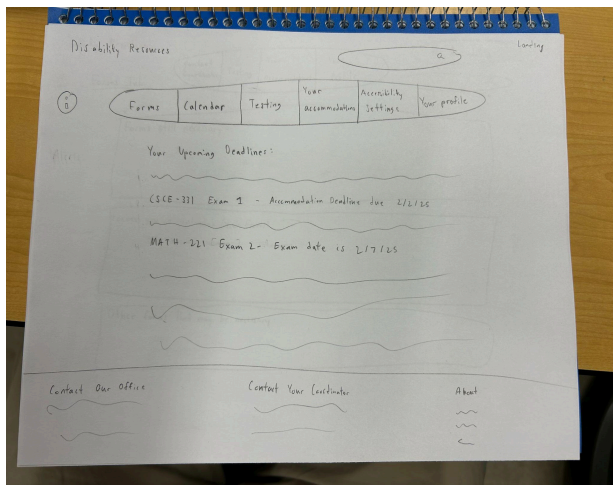 Disability Resources
Landing
Forms
Calendar
Testing
Your
accommodations
Accessibility
Settings
Your profile
Your Upcoming Deadlines:
CSCE-331 Exam 1 - Accommodation Deadline due 2/2/25
MATH-221 Exam 2- Exam date is 2/7/25
Contact Our Office
Contact Your Coordinator
About